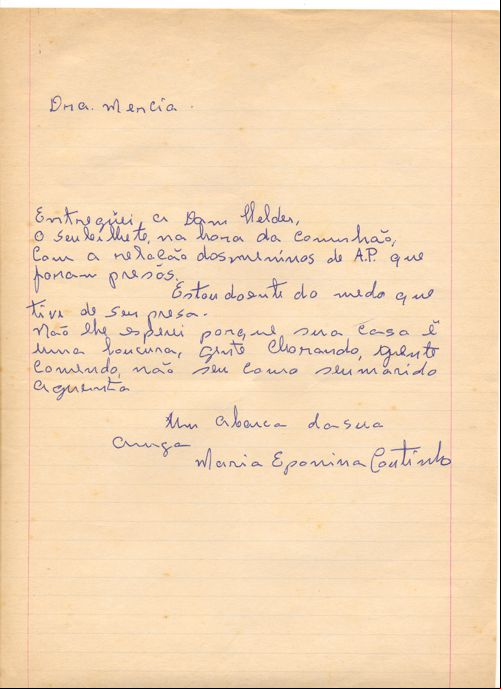 Dra. Mercia.
Entregüei, a Dom Helder,
O seu bilhete, na hora da Comunhão,
Com a relação dos meninos de A.P. que
foram presôs.
Estou doente do medo que
tive de ser presa.
Não lhe esperei porque sua casa é
uma loucura, gente Chorando, gente
Comendo, não sei como seu marido
aguenta
Um abraca da sua
amiga
Maria Eponina Coutinho